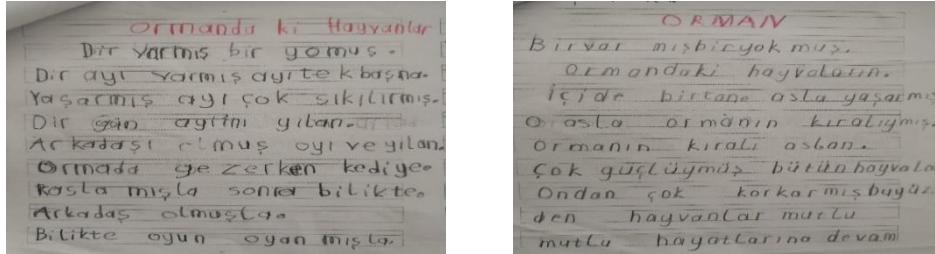 Ormanda ki Hayvanlar
Dir varmış bir yomuş.
Dir ayı varmış ayı tek başna.
Yaşarmış ayı çok sıkılırmış.
Dir gün ayrini yılan.
Arkadaşı olmuş oyı ve yılan.
Ormada gezerken kediye.
Rasla mışla sonra bilikte.
Arkadaş olmuşla.
Bilikte oyun oyan mışla.
ORMAN
Birvar mışbiryok muş.
Ormandaki hayvaların.
içide birtane asla yaşarmış
O asla ormanın kıralıymış.
Ormanın kıralı asban.
Çok güçlüymüş bütün hayvala
Ondan çok korkarmış buyüz
den hayvanlar mutlu
mutlu hayatlarına devam